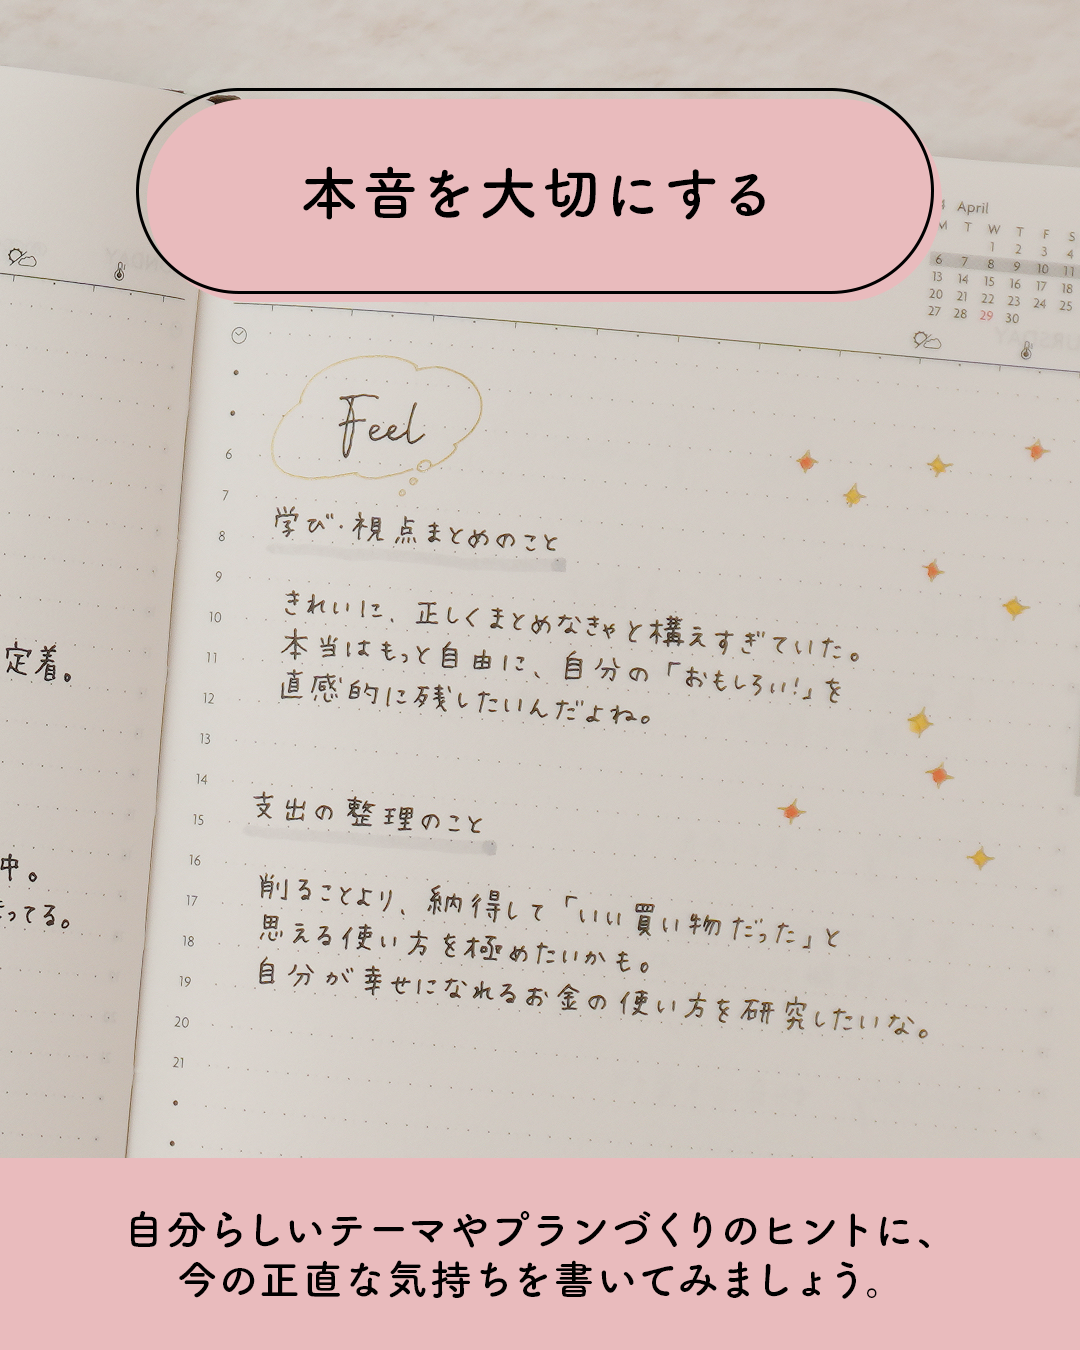 本音を大切にする
April
M T W T F S
1 2 3 4
6 7 8 9 10 11
13 14 15 16 17 18
20 21 22 23 24 25
27 28 29 30
Feel
6
7
学び・視点まとめのこと
8
9
きれいに、正しくまとめなきゃと構えすぎていた。
10
本当はもっと自由に、自分の「おもしろい!」を
11
直感的に残したいんだよね。
12
定着。
13
14
支出の整理のこと
15
16
削ることより、納得して「いい買い物だった」と
17
思える使い方を極めたいかも。
18
自分が幸せになれるお金の使い方を研究したいな。
19
20
21
中。
ってる。
自分らしいテーマやプランづくりのヒントに、
今の正直な気持ちを書いてみましょう。